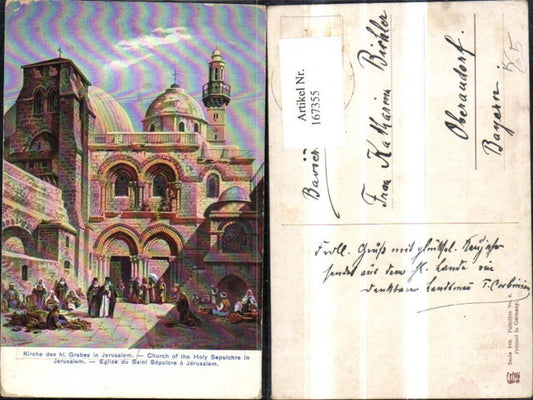 Kirche des hl. Grabes in Jerusalem. — Church of the Holy Sepulchre in
Jerusalem. — Eglise du Saint Sépulcre à Jérusalem.
Artikel Nr.
167355
Frau Katharina Bichler
Oberaudorf.
Bayern
Frdl. Gruß mit glückl. Neujahr
sendet aus dem hl. Lande ein
dankbarer Landsmann
Serie 769. Palästina No. 8.
Printed in Germany.